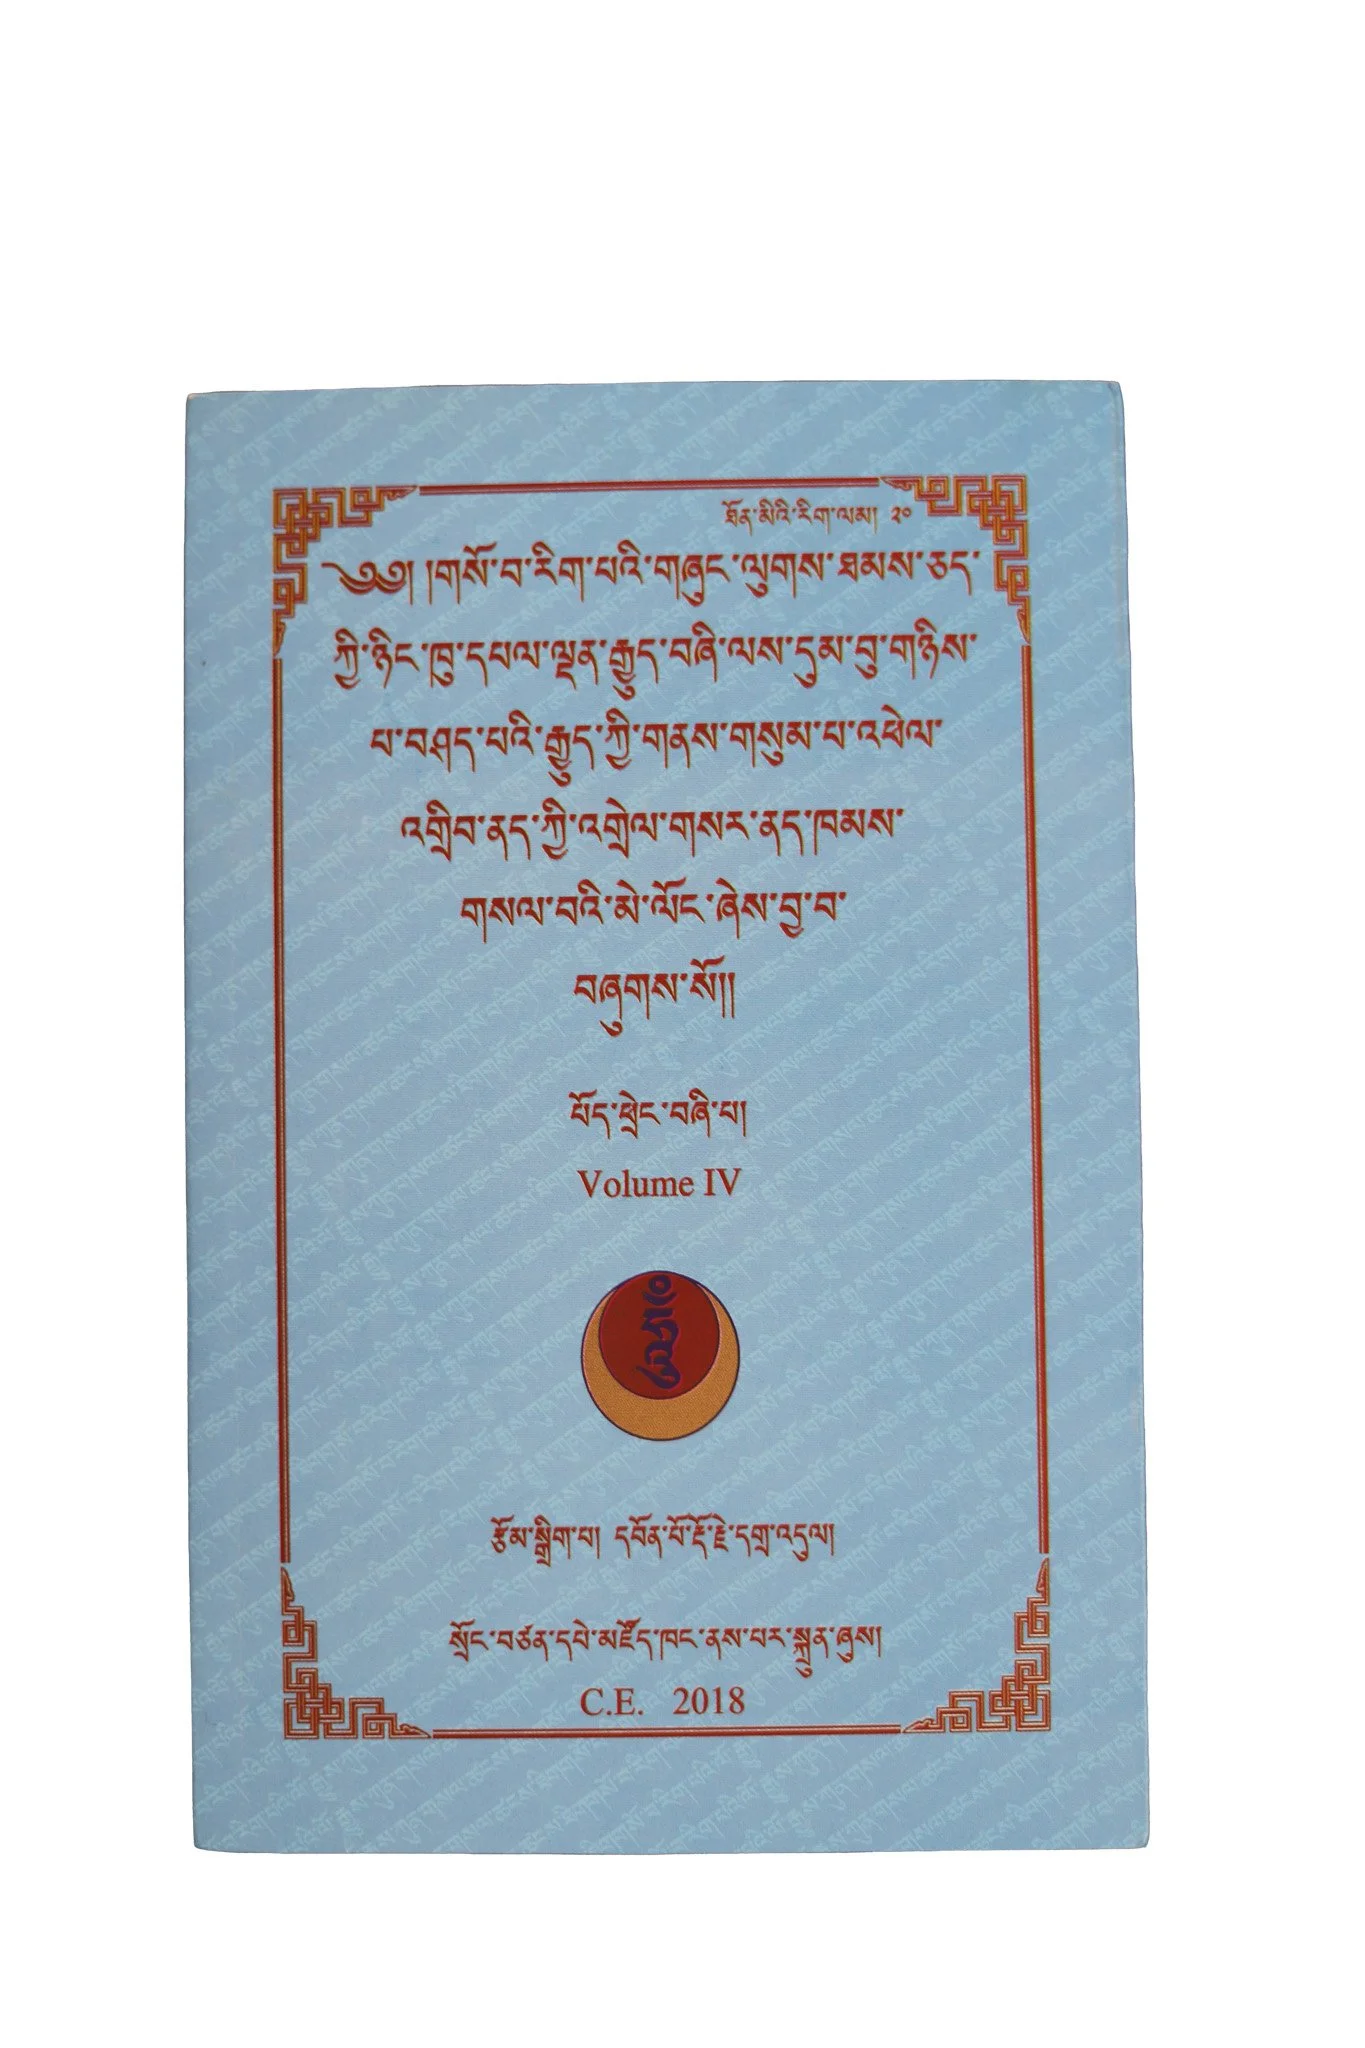 ཐོན་མིའི་རིག་ལམ། ༢༠
༄༅། །གསོ་བ་རིག་པའི་གཞུང་ལུགས་ཐམས་ཅད་
ཀྱི་ཉིང་ཁུ་དཔལ་ལྡན་རྒྱུད་བཞི་ལས་དུམ་བུ་གཉིས་
པ་བཤད་པའི་རྒྱུད་ཀྱི་གནས་གསུམ་པ་འཕེལ་
འགྲིབ་ནད་ཀྱི་འགྲེལ་གསར་ནད་ཁམས་
གསལ་བའི་མེ་ལོང་ཞེས་བྱ་བ་
བཞུགས་སོ།།
པོད་ཕྲེང་བཞི་པ།
Volume IV
རྩོམ་སྒྲིག་པ། དབོན་པོ་རྡོ་རྗེ་དགྲ་འདུལ།
སྲོང་བཙན་དཔེ་མཛོད་ཁང་ནས་པར་སྐྲུན་ཞུས།
C.E. 2018